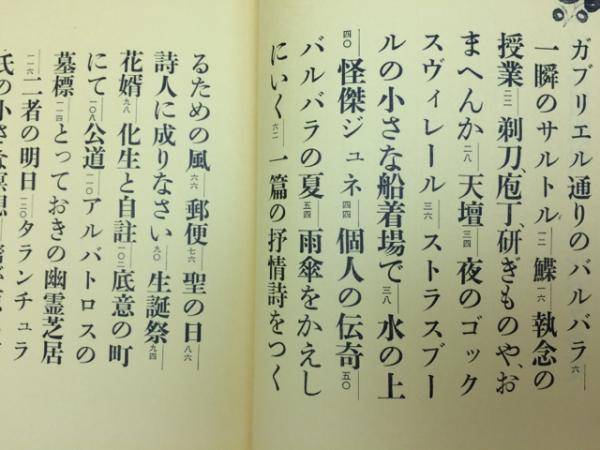 ガブリエル通りのバルバラ 六
一瞬のサルトル 一二 鰈 一六 執念の
授業 二二 剃刀、庖丁、研ぎものや、お
まへんか 二八 天壇 三四 夜のゴック
スヴィレール 三六 ストラスブー
ルの小さな船着場で 三八 水の上
四〇 怪傑ジュネ 四四 個人の伝奇 五〇
バルバラの夏 五四 雨傘をかえし
にいく 六二 一篇の抒情詩をつく
るための風 六六 郵便 七六 聖の日 八六
詩人に成りなさい 九〇 生誕祭 九四
花婿 九八 化生と自註 一〇二 底意の町
にて 一〇八 公道 一一〇 アルバトロスの
墓標 一一四 とっておきの幽霊芝居
一一六 二者の明日 一二〇 タランチュラ
氏の小さな冥想